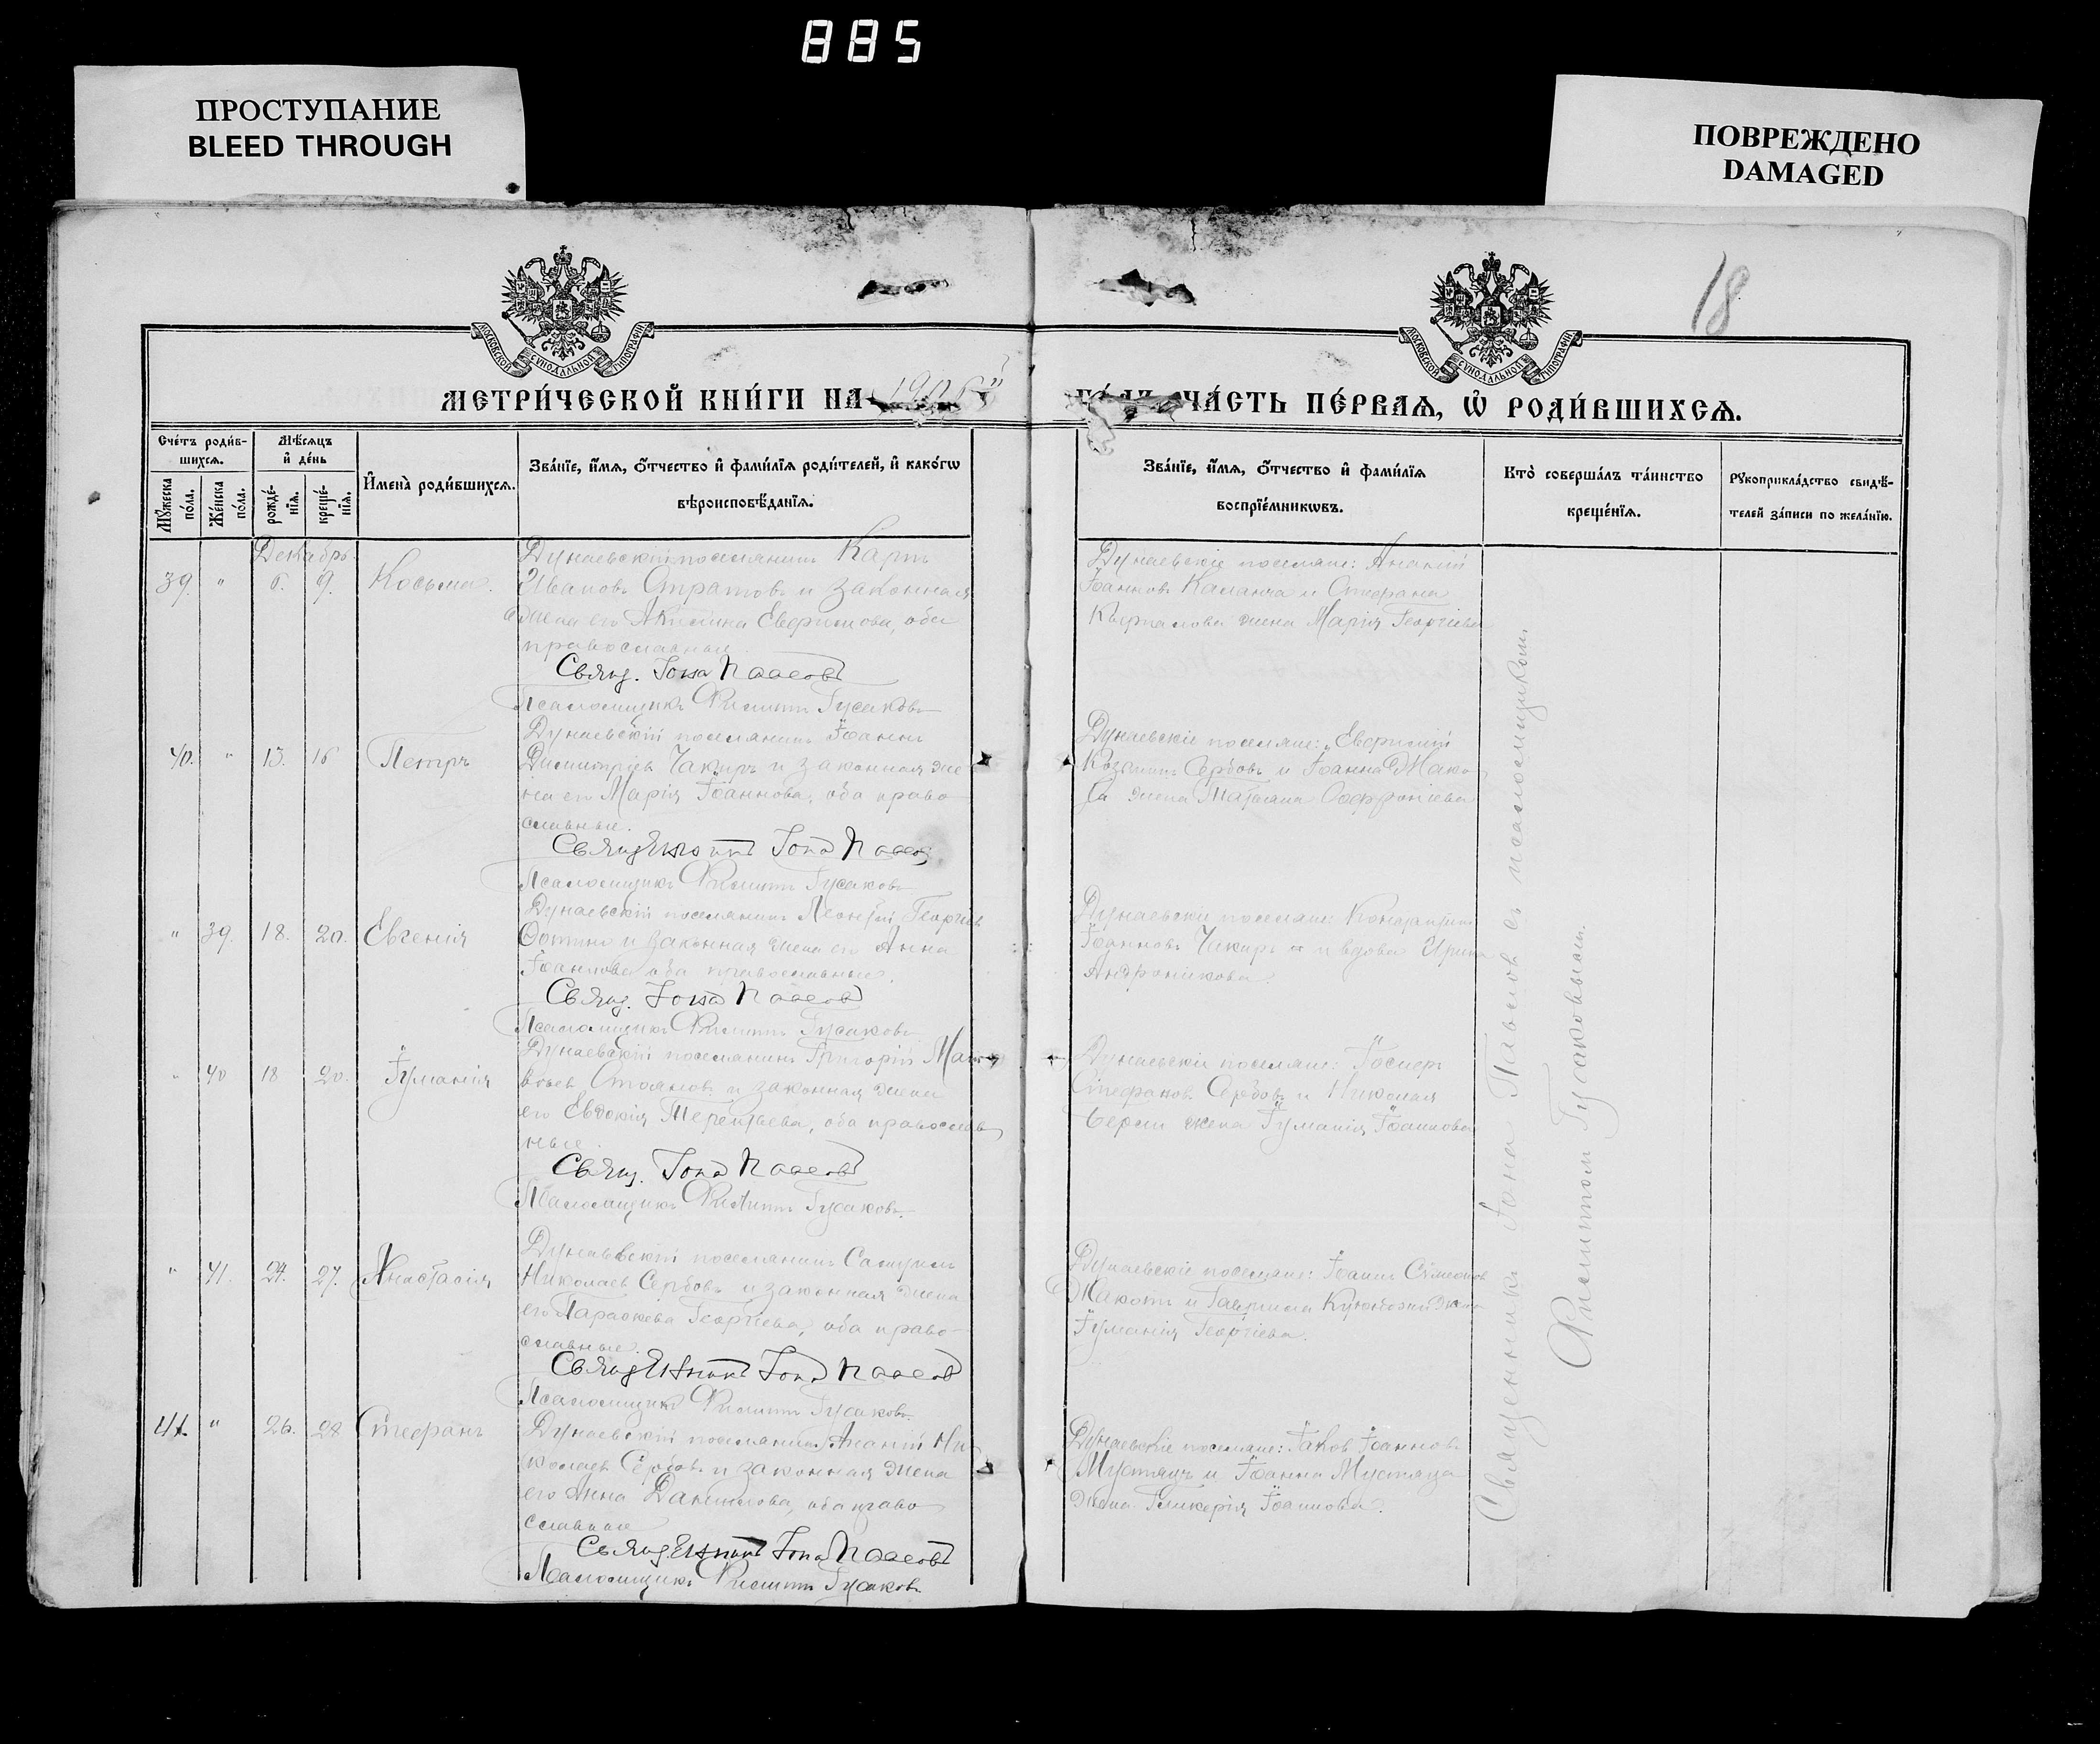 885
ПРОСТУПАНИЕ
BLEED THROUGH
ПОВРЕЖДЕНО
DAMAGED
18
МОСКОВСКОЙ СУНОДАЛЬНОЙ ТИПОГРАФІИ
МОСКОВСКОЙ СУНОДАЛЬНОЙ ТИПОГРАФІИ
МЕТРИ́ЧЕСКОЙ КНИ́ГИ НА
ЧА́СТЬ ПЕ́РВАЯ, Ѡ РОДИ́ВШИХСЯ.
Сче́тъ роди́в-
шихся.
Мꙋ́жеска
по́ла.
Же́нска
по́ла.
Мѣ́сяцъ
и҆ де́нь
рожде́-
нїя.
креще́-
нїя.
И҆мена̀ роди́вшихся.
Зва́нїе, и҆́мя, ѻ҆́тчество и҆ фами́лїя роди́телей, и҆ како́гѡ
вѣроисповѣ́данїя.
Зва́нїе, и҆́мя, ѻ҆́тчество и҆ фами́лїя
воспрїе́мникѡвъ.
Кто̀ соверша́лъ та́инство
креще́нїя.
Рꙋкоприкла́дство свидѣ́-
телей за́писи по жела́нїю.
Декабрь.
39. " 6. 9. Косьма.
Дунаевскій поселянинъ Карпъ
Ивановъ Стратовъ и законная
жена его Акилина Евфимова, оба
православные.
Свящ. Іона Павлов
Псаломщикъ Филиппъ Гусаковъ
Дунаевскіе поселяне: Ананій
Іоанновъ Каланча и Стефана
жена Марія Георгіева
40. " 13. 16 Петръ
Дунаевскій поселянинъ Іоаннъ
Димитріевъ Чакиръ и законная же
на его Марія Іоаннова, оба право
славные.
Священникъ Іона Павлов
Псаломщикъ Филиппъ Гусаковъ
Дунаевскіе поселяне: Евфимій
Козьминъ Сербовъ и Іоанна Жако
та жена Наталия Софроніева
" 39. 18. 20. Евгенія
Дунаевскій поселянинъ Леонтій Георгіев
Фотино и законная жена его Анна
Іоаннова оба православные.
Свящ. Іона Павлов
Псаломщикъ Филиппъ Гусаковъ
Дунаевскіе поселяне: Константинъ
Іоанновъ Чакиръ и вдова Ирина
Андроникова.
" 40 18 20. Іуманія
Дунаевскій поселянинъ Григорій Мат
вѣевъ Стояновъ и законная жена
его Евдокія Терентьева, оба православ
ные.
Свящ. Іона Павлов
Псаломщикъ Филиппъ Гусаковъ.
Дунаевскіе поселяне: Іосифъ
Стефановъ Сербовъ и Николая
жена Іуманія Іоаннова
" 41. 24. 27. Анастасія
Дунаевскій поселянинъ Самуилъ
Николаевъ Сербовъ и законная жена
его Параскева Георгіева, оба право-
славные.
Священникъ Іона Павлов
Псаломщикъ Филиппъ Гусаковъ.
Дунаевскіе поселяне: Іоаннъ Симеонов
Жакотъ и Гавриила жена
Іуманія Георгіева.
41. " 26. 28 Стефанъ
Дунаевскій поселянинъ Ананій Ни
колаевъ Сербовъ и законная жена
его Анна Даниилова, оба право
славные
Священникъ Іона Павлов
Псаломщикъ Филиппъ Гусаковъ.
Дунаевскіе поселяне: Іаковъ Іоанновъ
Мустяцъ и Іоанна Мустяца
жена Гликерія Іоаннова.
Священникъ Іона Павловъ съ псаломщикомъ
Филиппом Гусаковымъ.